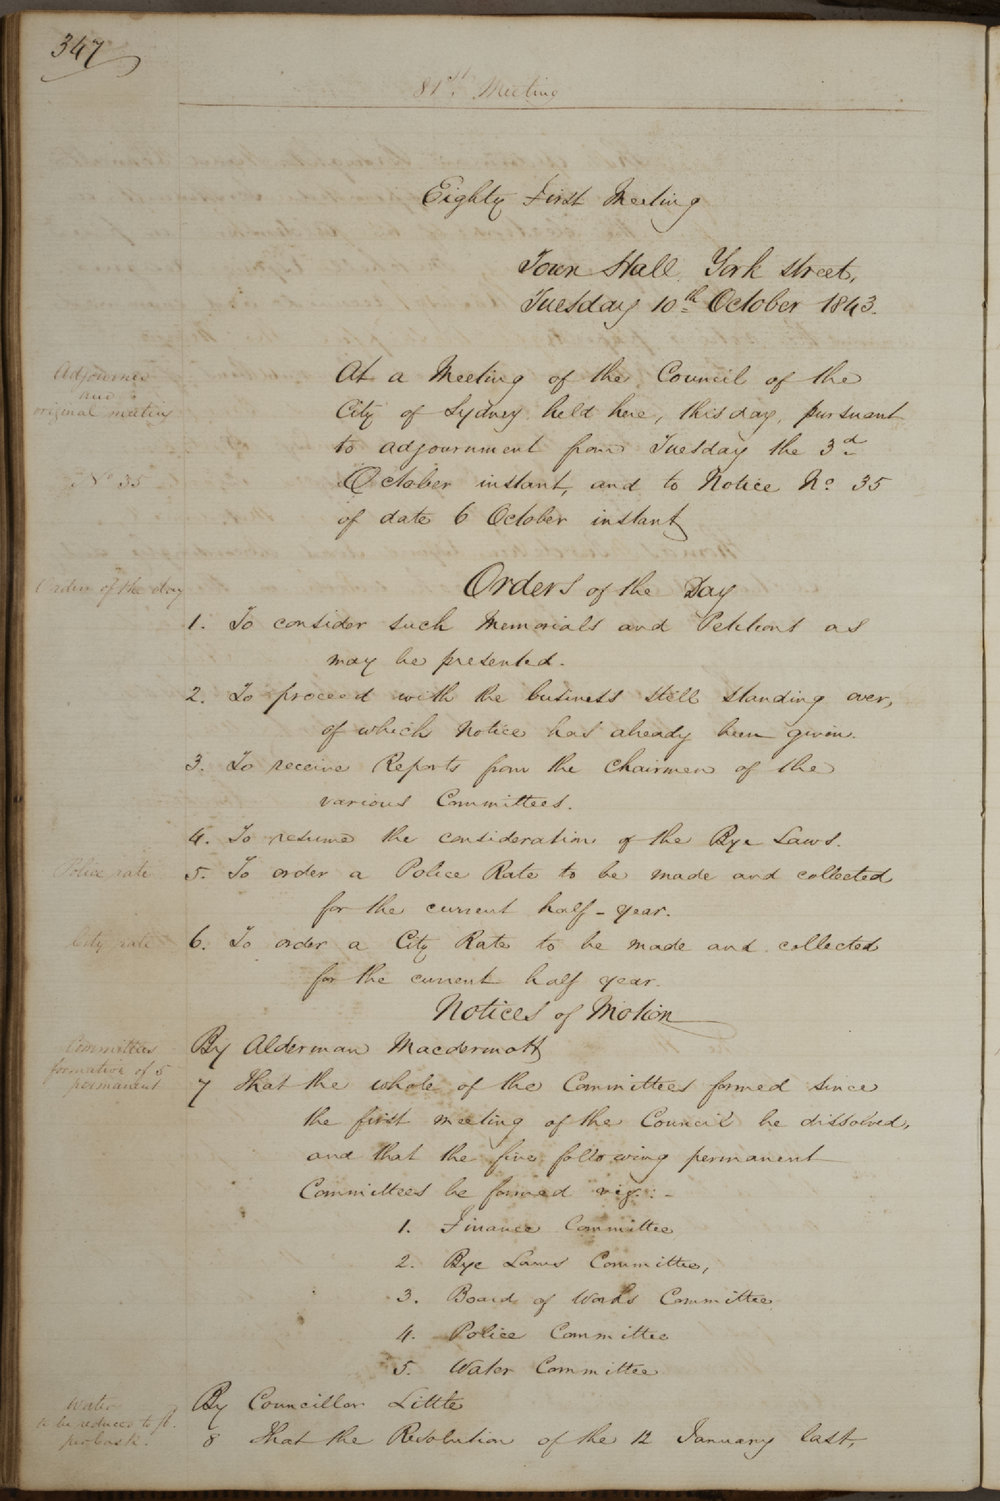 347
81st Meeting
Eighty First Meeting
Town Hall, York street,
Tuesday 10th October 1843.
Adjourned
and
original meeting
At a Meeting of the Council of the
City of Sydney held here, this day, pursuant
to adjournment from Tuesday the 3d
No 35
October instant, and to Notice No 35
of date 6 October instant
Orders of the day
Orders of the Day
1. To consider such Memorials and Petitions as
may be presented.
2. To proceed with the business still standing over,
of which Notice has already been given.
3. To receive Reports from the Chairmen of the
various Committees.
4. To resume the consideration of the Bye Laws.
Police rate
5. To order a Police Rate to be made and collected
for the current half-year.
City rate
6. To order a City Rate to be made and collected
for the current half year.
Notices of Motion
By Alderman Macdermott
Committees
formation of 5
permanent
7 That the whole of the Committees formed since
the first meeting of the Council be dissolved,
and that the five following permanent
Committees be formed viz:-
1. Finance Committee
2. Bye Laws Committee,
3. Board of Works Committee
4. Police Committee
5. Water Committee
Water
to be reduced to
per
By Councillor Little
8 That the Resolution of the 12 January last,